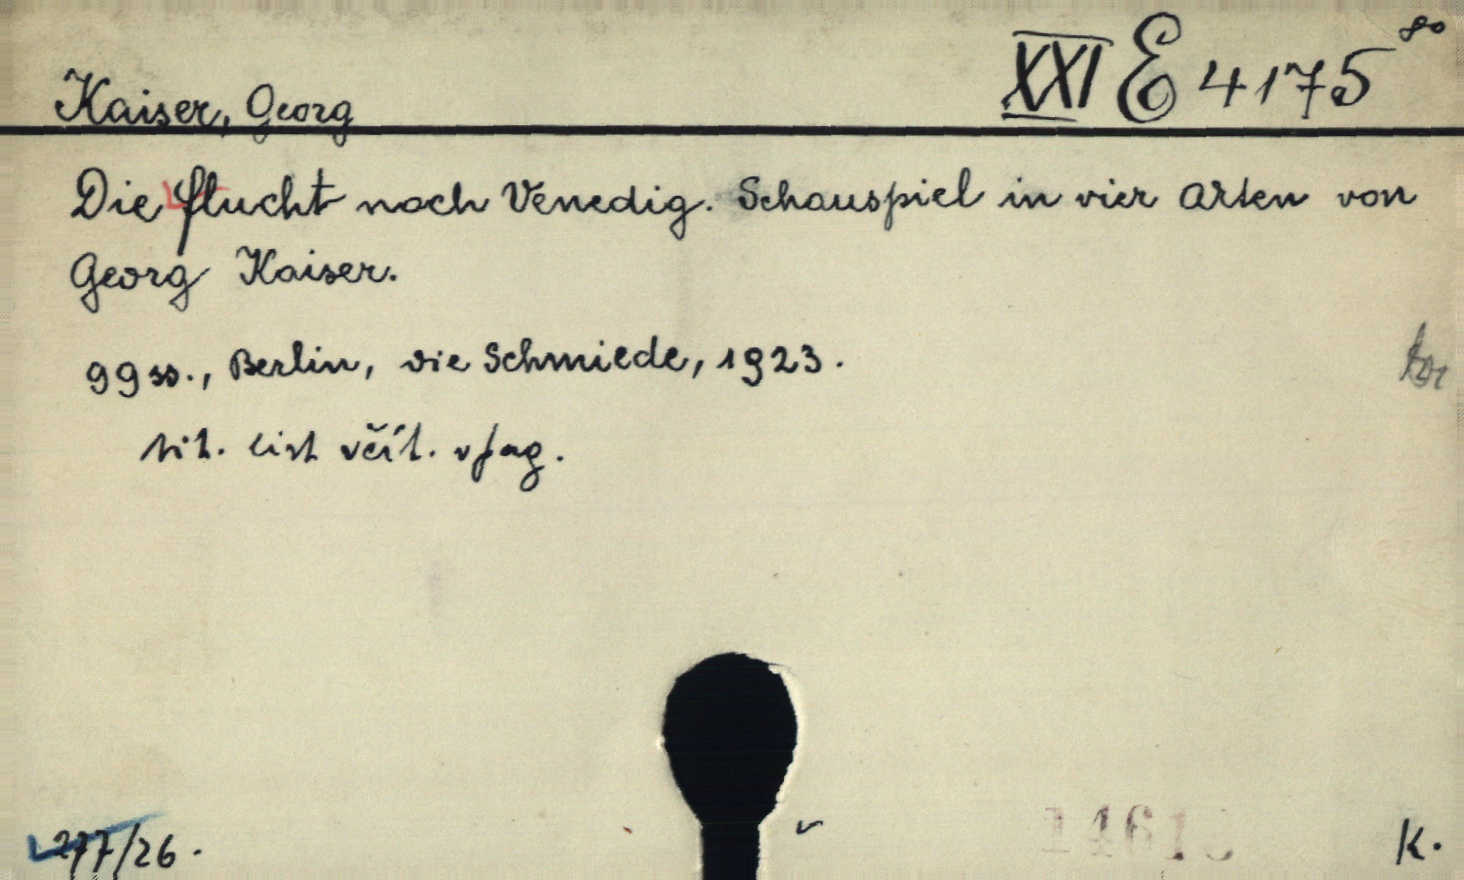 XXI E 4175 8o
Kaiser, Georg
Die flucht nach Venedig. Schauspiel in vier Akten von
Georg Kaiser.
99 ss., Berlin, die Schmiede, 1923.
tit. list včít. v pag.
277/26.
K.